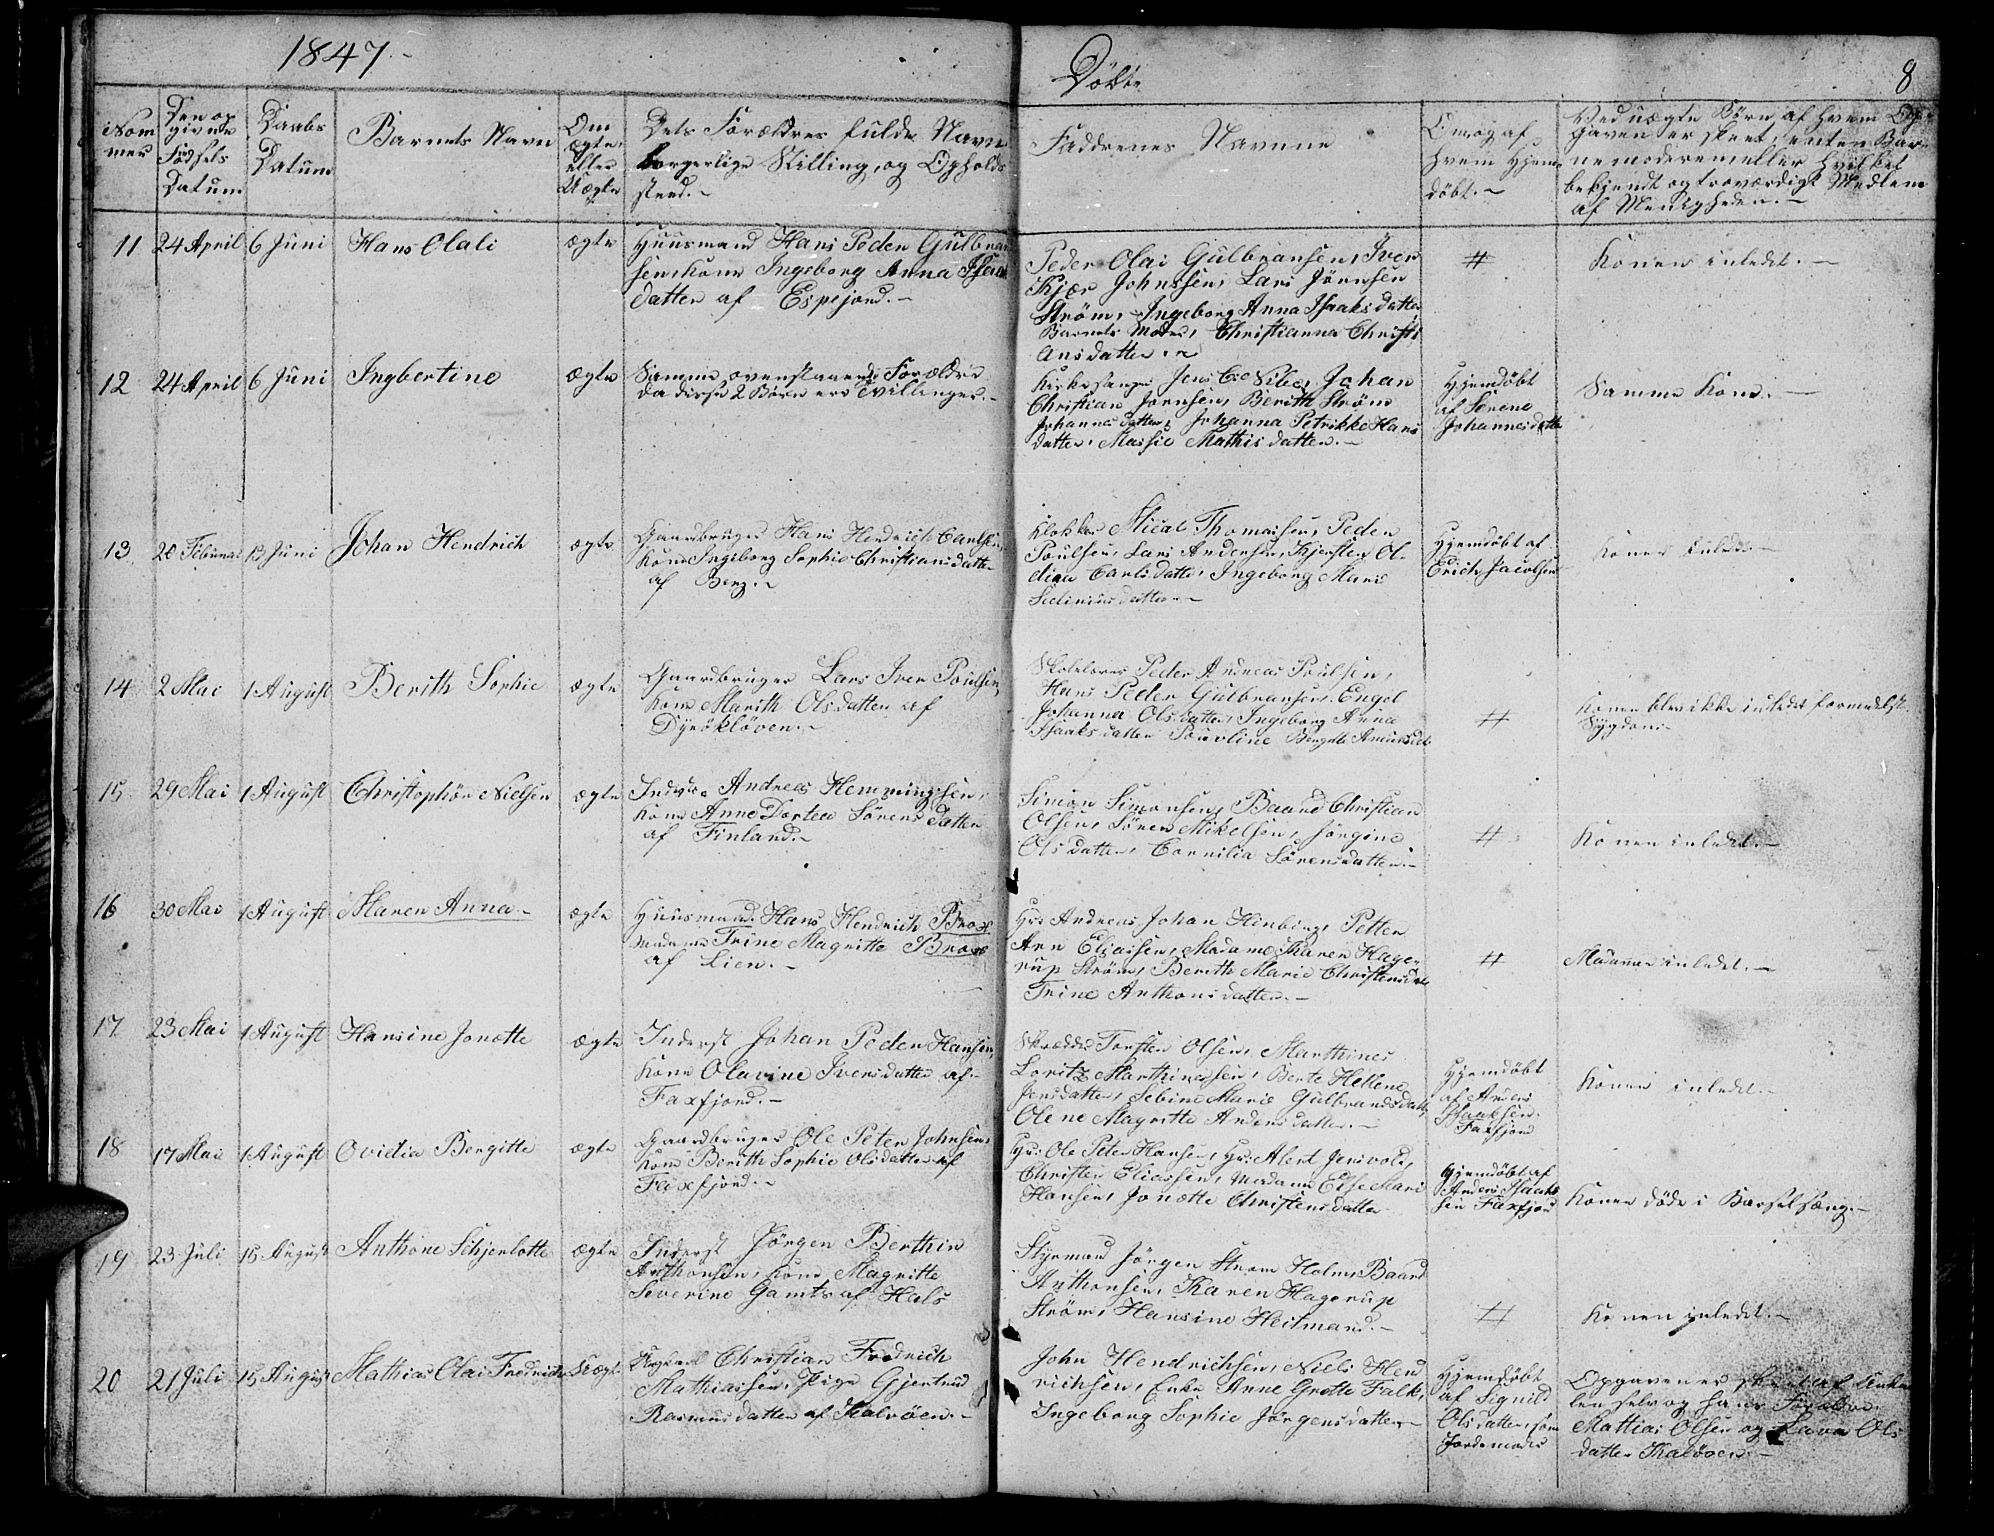 1847.
Döbte
8
Nom
mer
Den op
givne
Födsels
Datum
Daabs
Datum
Barnets Navn
Om
ægte,
eller
Uægte
Dets Forældres fulde Navn
borgerlige Stilling, og Opholds
sted.-
Faddrenes Navnne
Om og af
hvem hjem
döbt.-
Ved uægte Börn af hvem Op
gaven er skeet, enten Bar
nemoderen eller hvilket
bekjendt og troværdigt Medlem
af Menigheden.-
11 24 April 6 Juni Hans Olali ægte
Huusmand Hans Peder Gulbran
sen, Kone Ingeborg Anna Isaks
datter af Espejord.-
Peder Olai Gulbransen, Iver
Kjær Johnssen, Lars Jörnsen
Ström, Ingeborg Anna Isaaks datter
Barnets Moder, Christianna Christi
ansdatter.-
#
Konen inledet.-
12 24 April 6 Juni Ingbertine ægte
Samme ovenstaaende Forældre
da disse 2 Börn ere Tvillinger.-
Kirkesanger Jens Nibe, Johan
Christian Jörnsen, Berith Ström
Johannesdatter, Johanna Petrikke Hans
datter, Massie Mathisdatter.-
Hjemdöbt
af Serene
Johannesdatter
Samme Kone.-
13 20 Februar 13 Juni Johan Hendrich ægte
Gaardbruger Hans Hendrich Carlsen,
Kone Ingeborg Sophie Christiansdatter
af Berg.-
Klokker Micael Thomassen, Peder
Poulsen, Lars Andersen, Kjersten Ol-
dina Carlsdatter, Ingeborg Maris
datter.-
Hjemdöbt af
Erich Jacobsen
Konen inledet.-
14 2 Mai 1 August Berith Sophie ægte
Gaardbruger Lars Iver Poulsen,
Kone Marith Olsdatter af
Dyrökløven.-
Skolelærer Peder Andreas Poulsen,
Hans Peder Gulbransen, Engel
Johanna Olsdatter, Ingeborg Anna
Isaaksdatter Pouvline Bergitte
#
Konen blev ikke inledet formedelst
Sygdom.-
15 29 Mai 1 August Christophör Nielsen ægte
Inderst Andreas Hemmingsen,
Kone Anne Dortea Sörensdatter
af Finland.-
Simon Simonsen, Baard Christian
Olsen, Sören Mikelsen, Jörgine
Olsdatter, Cornilia Sörensdatter.-
#
Konen inledet.-
16 30 Mai 1 August Maren Anna.- ægte
Huusmand Hans Hendrich Brox
Madame Trine Magritte Brox
af Lien.-
Hr: Andreas Johan Kinberg, Petter
Arn Eliassen, Madame Karen Hage-
rup Ström, Berith Marie Christensdtr
Trine Anthonsdatter.-
#
Madamen inledet.-
17 23 Mai 1 August Hansine Jonette ægte
Inderst Johan Peder Hansen,
Kone Olavine Iversdatter af
Faxfjord.-
Skrædder Torsten Olsen, Marthines
Loritz Marthinessen, Berte Hellene
Jensdatter, Sebine Marie Gulbrandsdatter,
Olene Magritte Andersdatter.-
Hjemdöbt
af Anders
Isaaksen
Faxfjord
Konen inledet.-
18 17 Mai 1 August Ovidia Bergitte ægte
Gaardbruger Ole Peter Johnsen,
Kone Berith Sophie Olsdatter af
Faxfjord.-
Hr: Ole Peter Hansen, Hr: Alert Jensvold,
Christen Eliassen, Madame Else Mari
Hansen, Jonette Christensdatter
Hjemdöbt af
Anders Isaak
sen Faxfjord
Konen döde i Barselseng.-
19 23 Juli 15 August Anthone Schjerlotte ægte
Inderst Jörgen Berthin
Anthonsen, Kone Magritte
Severine Gamts af Hals
Styrmand Jörgen Strom Holm, Baard
Anthonsen, Karen Hagerup
Ström, Hansine Heitmand.-
#
Konen inledet.-
20 21 Juli 15 August Mathias Olai Fredrich Uægte
Ungkarl Christian Fredrich
Mathiassen, Pige Gjertrud
Rasmusdatter af Kalvöen.-
John Hendrichsen, Niels Hend
richsen, Enke Anne Grette Falk,
Ingeborg Sophie Jörgensdatter.-
Hjemdöbt
af Signild
Olsdatter, som
Jordemoder
Opgaven er skeet af Enke
len selv og hans Forældre
Mattias Olsen og Lava Ols
datter Kalvöen.-